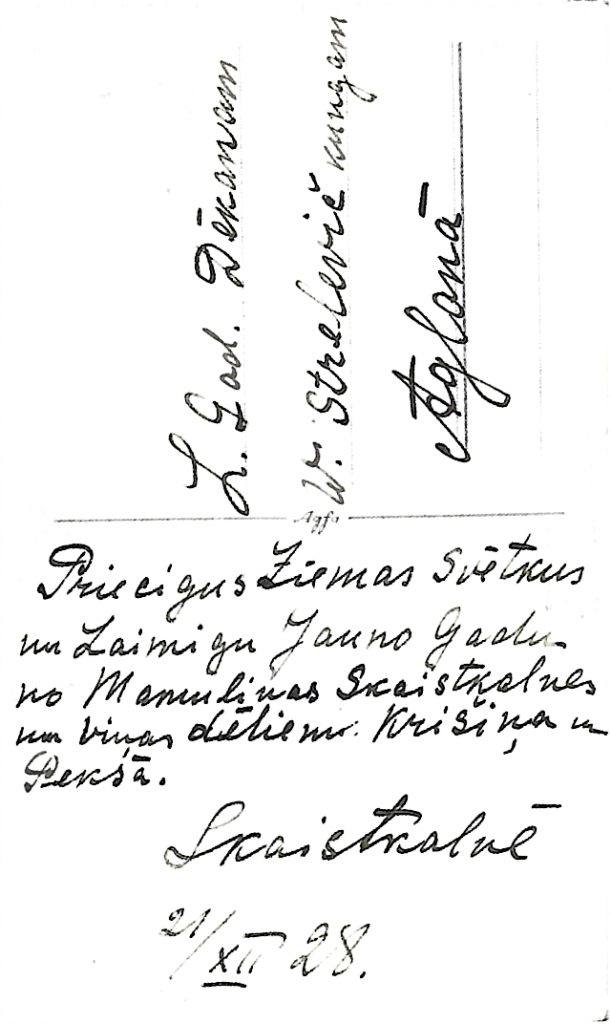 L. God. Dēkanam
W. Strelevič kungam
Aglonā
Agfa
Priecigus Ziemas Svētkus
un Laimigu Jauno Gadu
no Mamuliņas Skaistkalnes
un viņas dēliem: Krišiņa un
Pekšā.
Skaistkalnē
21/XII 28.